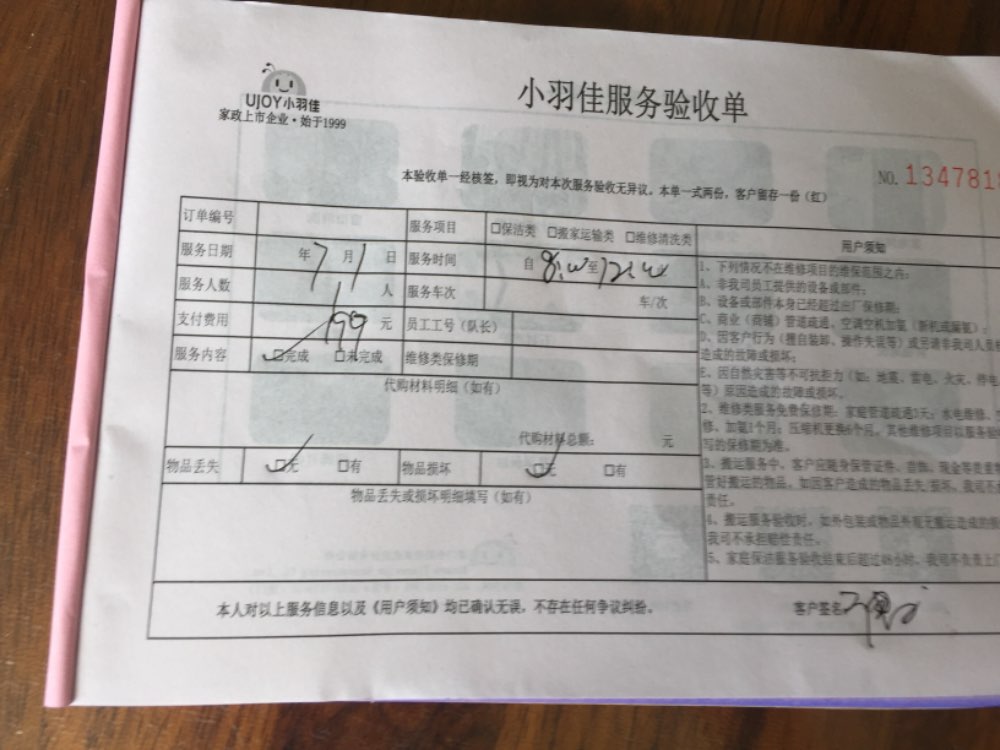 UJOY小羽佳
家政上市企业·始于1999
小羽佳服务验收单
本验收单一经核签，即视为对本次服务验收无异议。本单一式两份，客户留存一份（红）
NO. 134781
订单编号 服务项目 □保洁类 □搬家运输类 □维修清洗类
服务日期 年7月1日 服务时间 自8:00至12:00
服务人数 1人 服务车次 车/次
支付费用 199元 员工工号（队长）
服务内容 □完成 □未完成 维修类保修期
代购材料明细（如有）
代购材料总额： 元
物品丢失 □无 □有 物品损坏 □无 □有
物品丢失或损坏明细填写（如有）
用户须知
1、下列情况不在维修项目的维保范围之内：
A、非我司员工提供的设备或部件；
B、设备或部件本身已经超过出厂保修期；
C、商业（商铺）管道疏通、空调空机加氟（新机或漏氟）；
D、因客户行为（擅自装卸、操作失误等）或另请非我司人员
造成的故障或损坏；
E、因自然灾害等不可抗拒力（如：地震、雷电、火灾、停电
等）原因造成的故障或损坏。
2、维修类服务免费保修期：家庭管道疏通3天；水电维修、
修、加氟1个月；压缩机更换6个月。其他维修项目以服务验
写的保修期为准。
3、搬运服务中，客户应随身保管证件、首饰、现金等贵重
管好搬运的物品。如因客户造成的物品丢失/损坏，我司不
责任。
4、搬运服务验收时，如外包装或物品外观无搬运造成的
我司不承担赔偿责任。
5、家庭保洁服务验收结束后超过48小时，我司不负责上
本人对以上服务信息以及《用户须知》均已确认无误，不存在任何争议纠纷。 客户签名